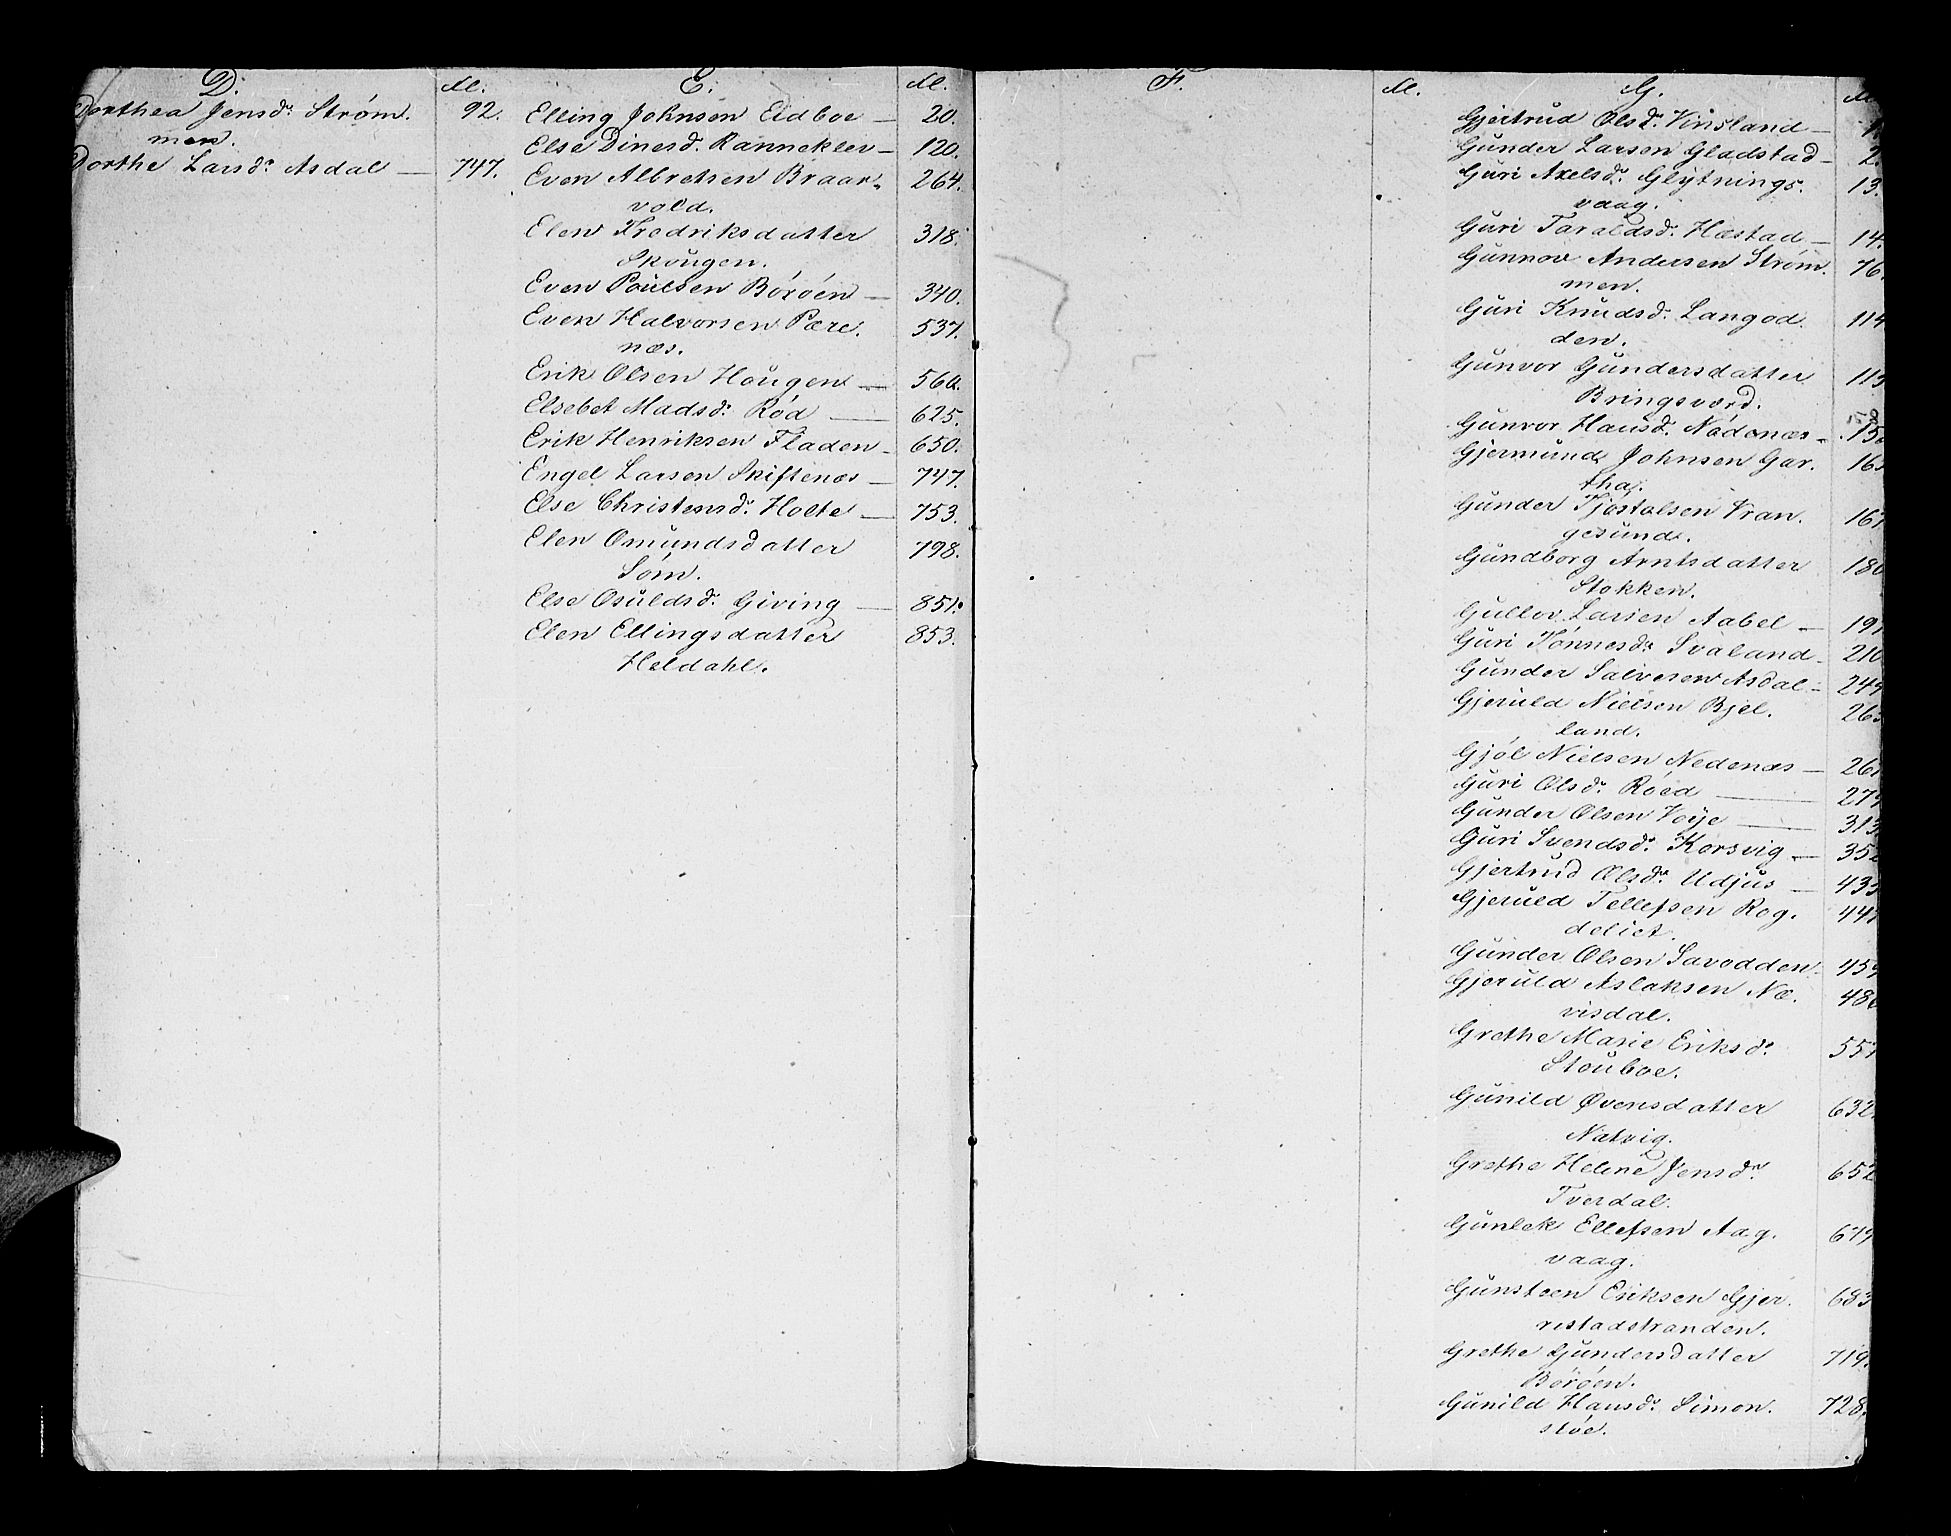 D.
Dorthea Jensdr. Strøm. 92.
men.
Dorthe Larsdr. Asdal — 747.
E.
Elling Johnsen Eidboe — 20.
Else Dinesd. Ranneklev — 120.
Even Albretsen Braar. 264.
vold.
Elen Fredriksdatter 318.
Skougen.
Even Poulsen Börøen — 340.
Even Halvorsen Pære. 537.
næs.
Erik Olsen Hougen — 560.
Elsebet Madsdr. Rød — 625.
Erik Henriksen Fladen — 650.
Engel Larsen Skiftenæs — 747.
Else Christensdr. Holte — 753.
Elen Omundsdatter 798.
Søm.
Else Osuldsdr. Giving — 851.
Elen Ellingsdatter 853.
Heldahl.
F.
G.
Gjertrud Olsdr. Vinsland —
Gunder Larsen Gladstad — 2
Guri Axelsdr. Gløtnings. 13
vaag.
Guri Taraldsdr. Hæstad — 14
Gunnov Andersen Strøm. 76
men.
Guri Knudsdr. Langod. 114
den.
Gunvor Gundersdatter 115
Bringsværd.
Gunvor Hansdr. Nödenæs — 15
Gjermund Johnsen Gar. 16
tha.
Gunder Tjostolsen Vran. 167
gesund.
Gundborg Arntsdatter 180
Stokken.
Gullov Larsen Aabel — 191
Guri Tønnesdr. Svaland — 210
Gunder Salvesen Asdal — 249
Gjeruld Nielsen Bjel. 26
land.
Gjøl Nielsen Nedenæs — 267
Guri Olsdr. Röed — 279
Gunder Olsen Voije — 313
Guri Svendsdr. Korsvig — 352
Gjertrud Olsdr. Udjus — 435
Gjeruld Tellefsen Rog. 447
deliet.
Gunder Olsen Savodden — 459
Gjeruld Aslaksen Næ. 48
visdal.
Grethe Marie Eriksdr. 557
Stouboe.
Gunild Øvensdatter 632.
Natvig.
Grethe Helene Jensdr. 652
Tverdal.
Gunlek Ellefsen Aag. 679
vaag.
Gunsteen Eriksen Gjer. 683
restadstranden.
Grethe Gundersdatter 719.
Börøen.
Gunild Hansdr. Simon. 728.
støe.